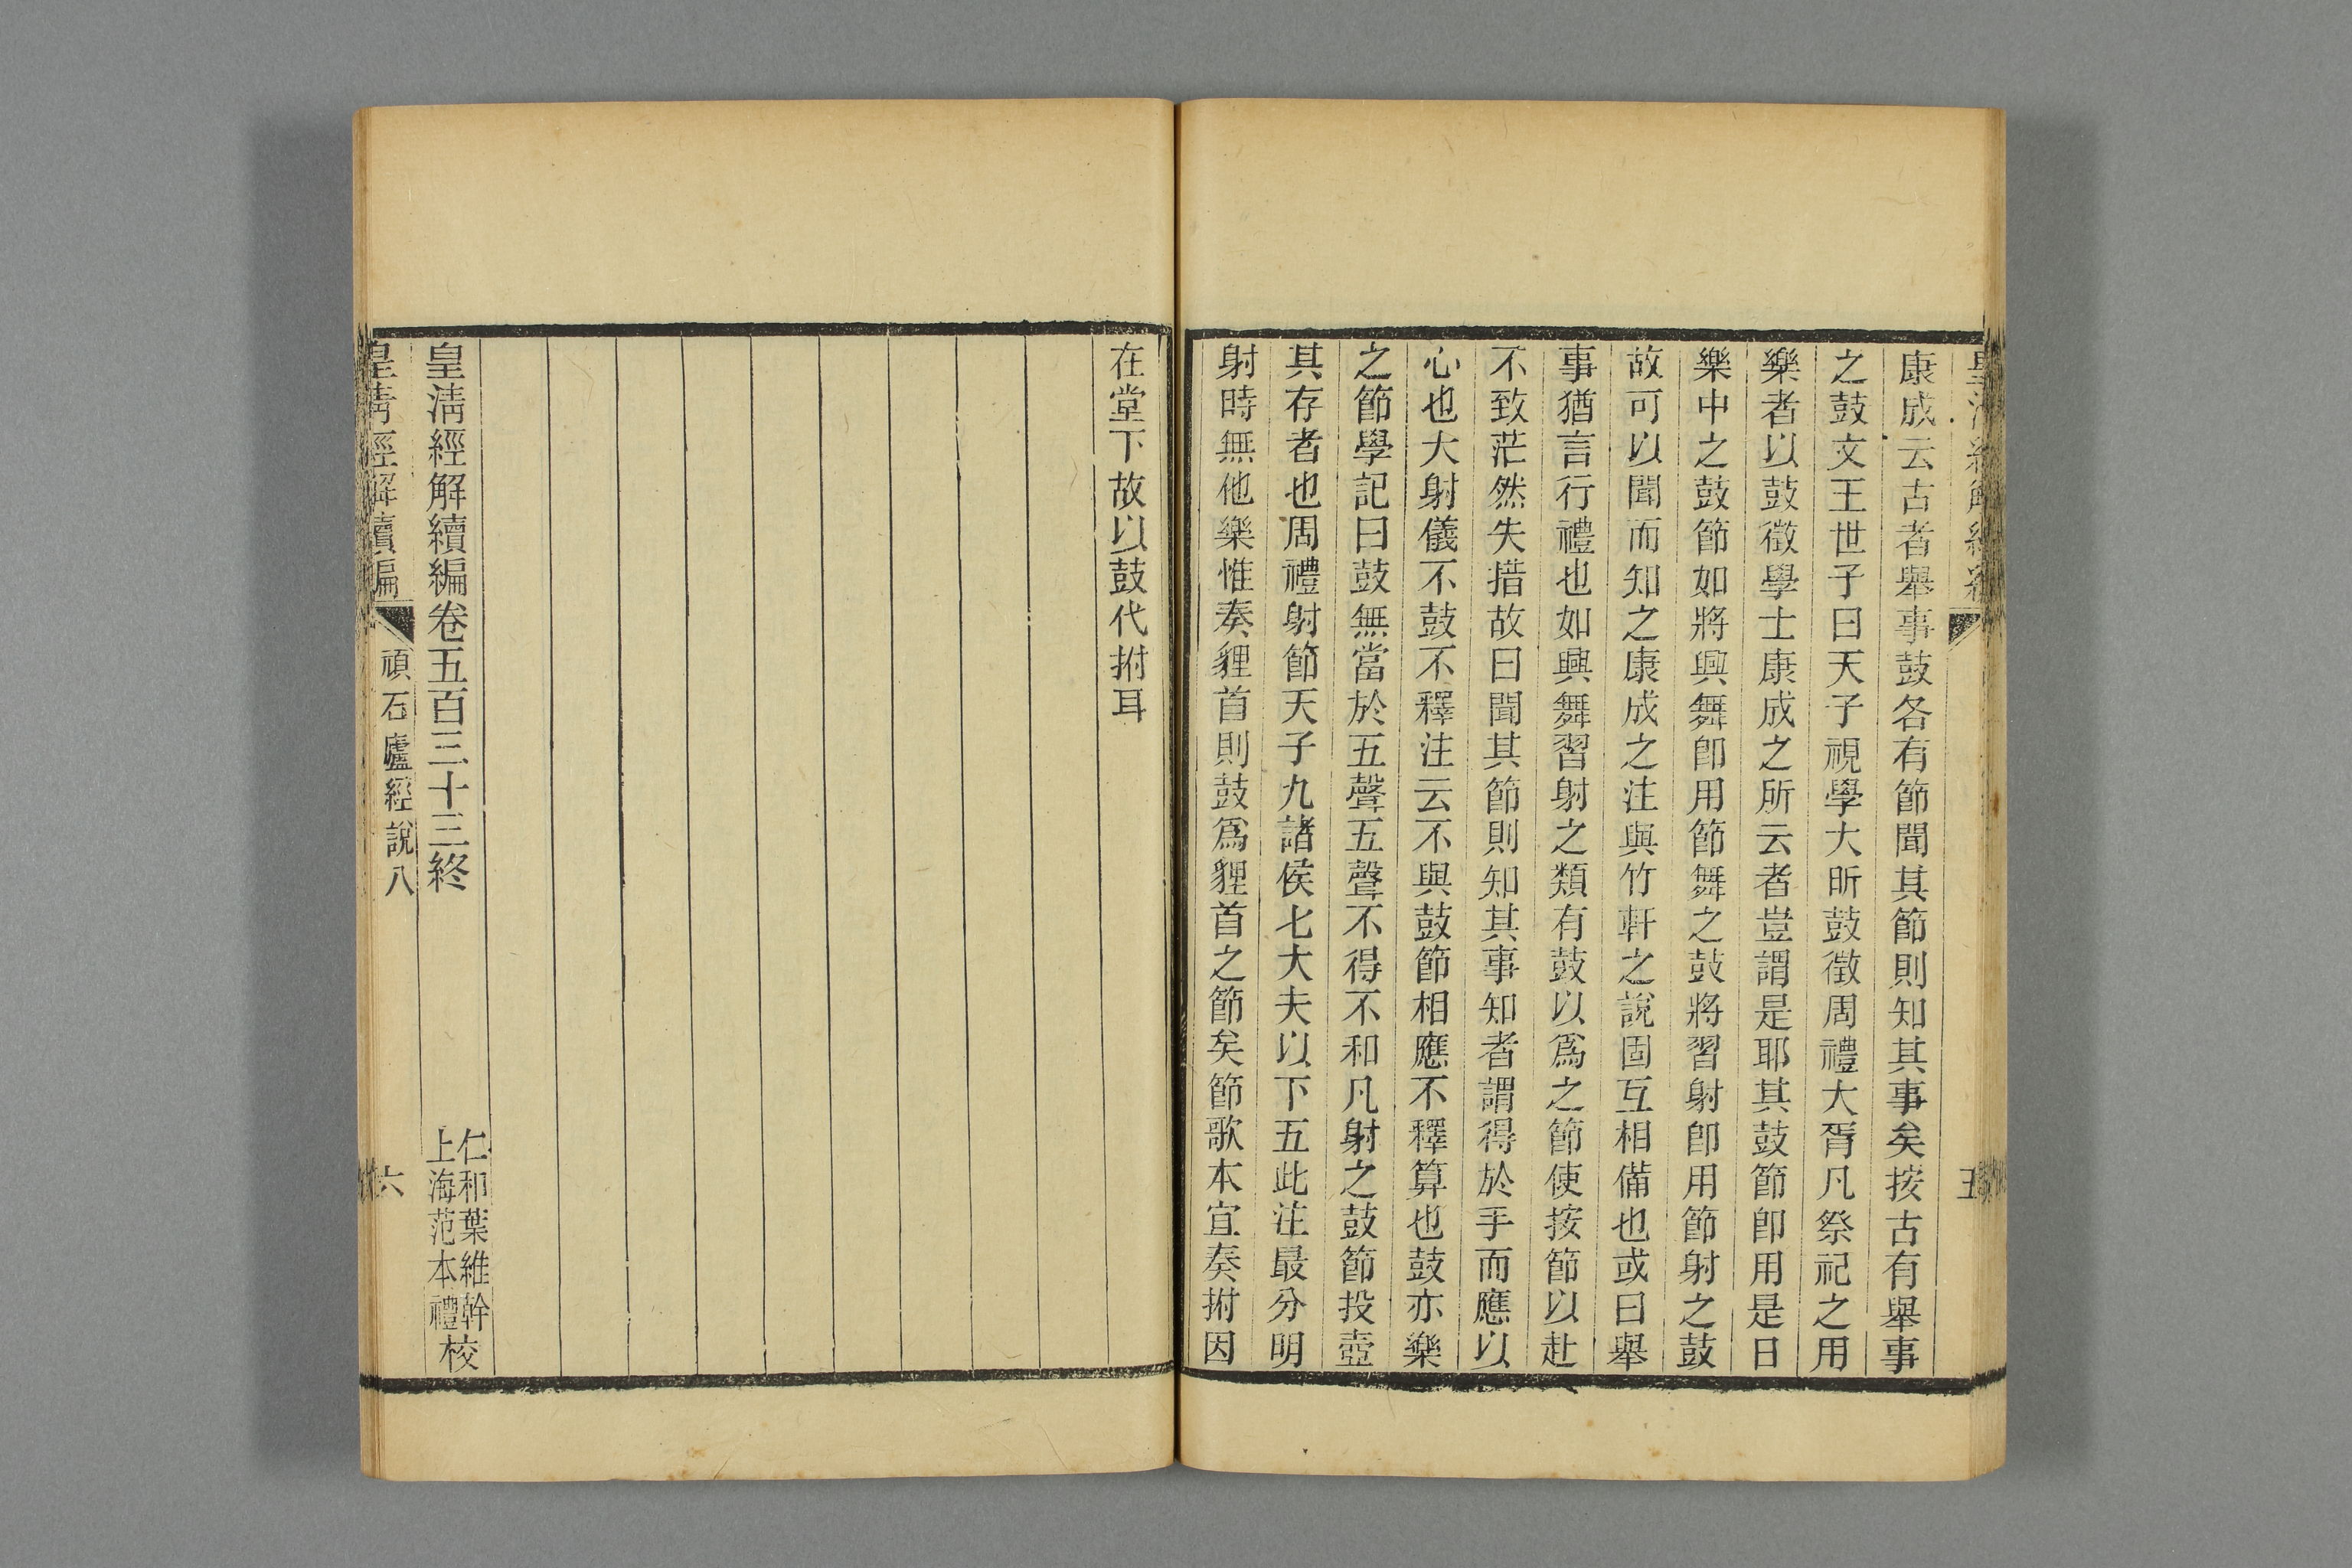 康成云古者舉事鼓各有節聞其節則知其事矣按古有舉事
之鼓文王世子曰天子視學大昕鼓徵周禮大胥凡祭祀之用
樂者以鼓徵學士康成之所云者豈謂是耶其鼓節卽用是日
樂中之鼓節如將興舞卽用節舞之鼓將習射卽用節射之鼓
故可以聞而知之康成之注與竹軒之說固互相備也或曰舉
事猶言行禮也如興舞習射之類有鼓以爲之節使按節以赴
不致茫然失措故曰聞其節則知其事知者謂得於手而應以
心也大射儀不鼓不釋注云不與鼓節相應不釋算也鼓亦樂
之節學記曰鼓無當於五聲五聲不得不和凡射之鼓節投壺
其存者也周禮射節天子九諸侯七大夫以下五此注最分明
射時無他樂惟奏貍首則鼓爲貍首之節矣節歌本宜奏拊因
在堂下故以鼓代拊耳
皇淸經解續編卷五百三十三終
仁和葉維幹
上海范本禮
校
皇淸經解續編
頑石廬經說八
六